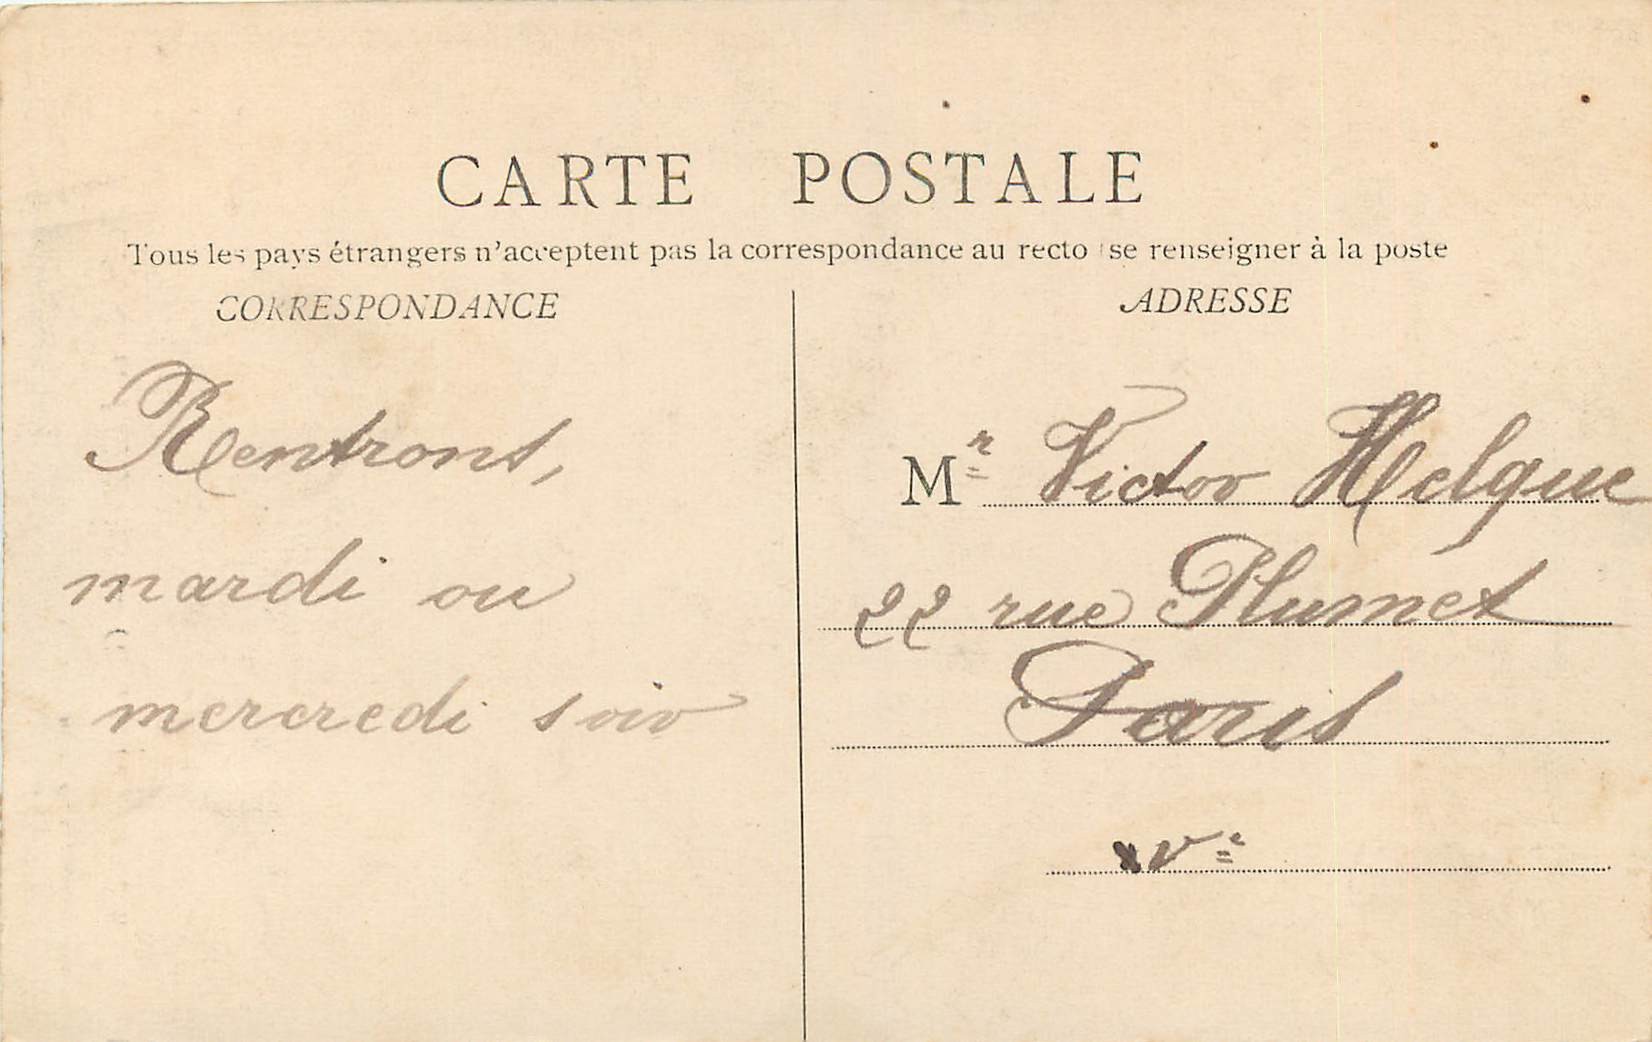 CARTE POSTALE
Tous les pays étrangers n'acceptent pas la correspondance au recto (se renseigner à la poste
CORRESPONDANCE
Rentrons,
mardi ou
mercredi soir
ADRESSE
Mr Victor Helque
22 rue Plumet
Paris
XVe